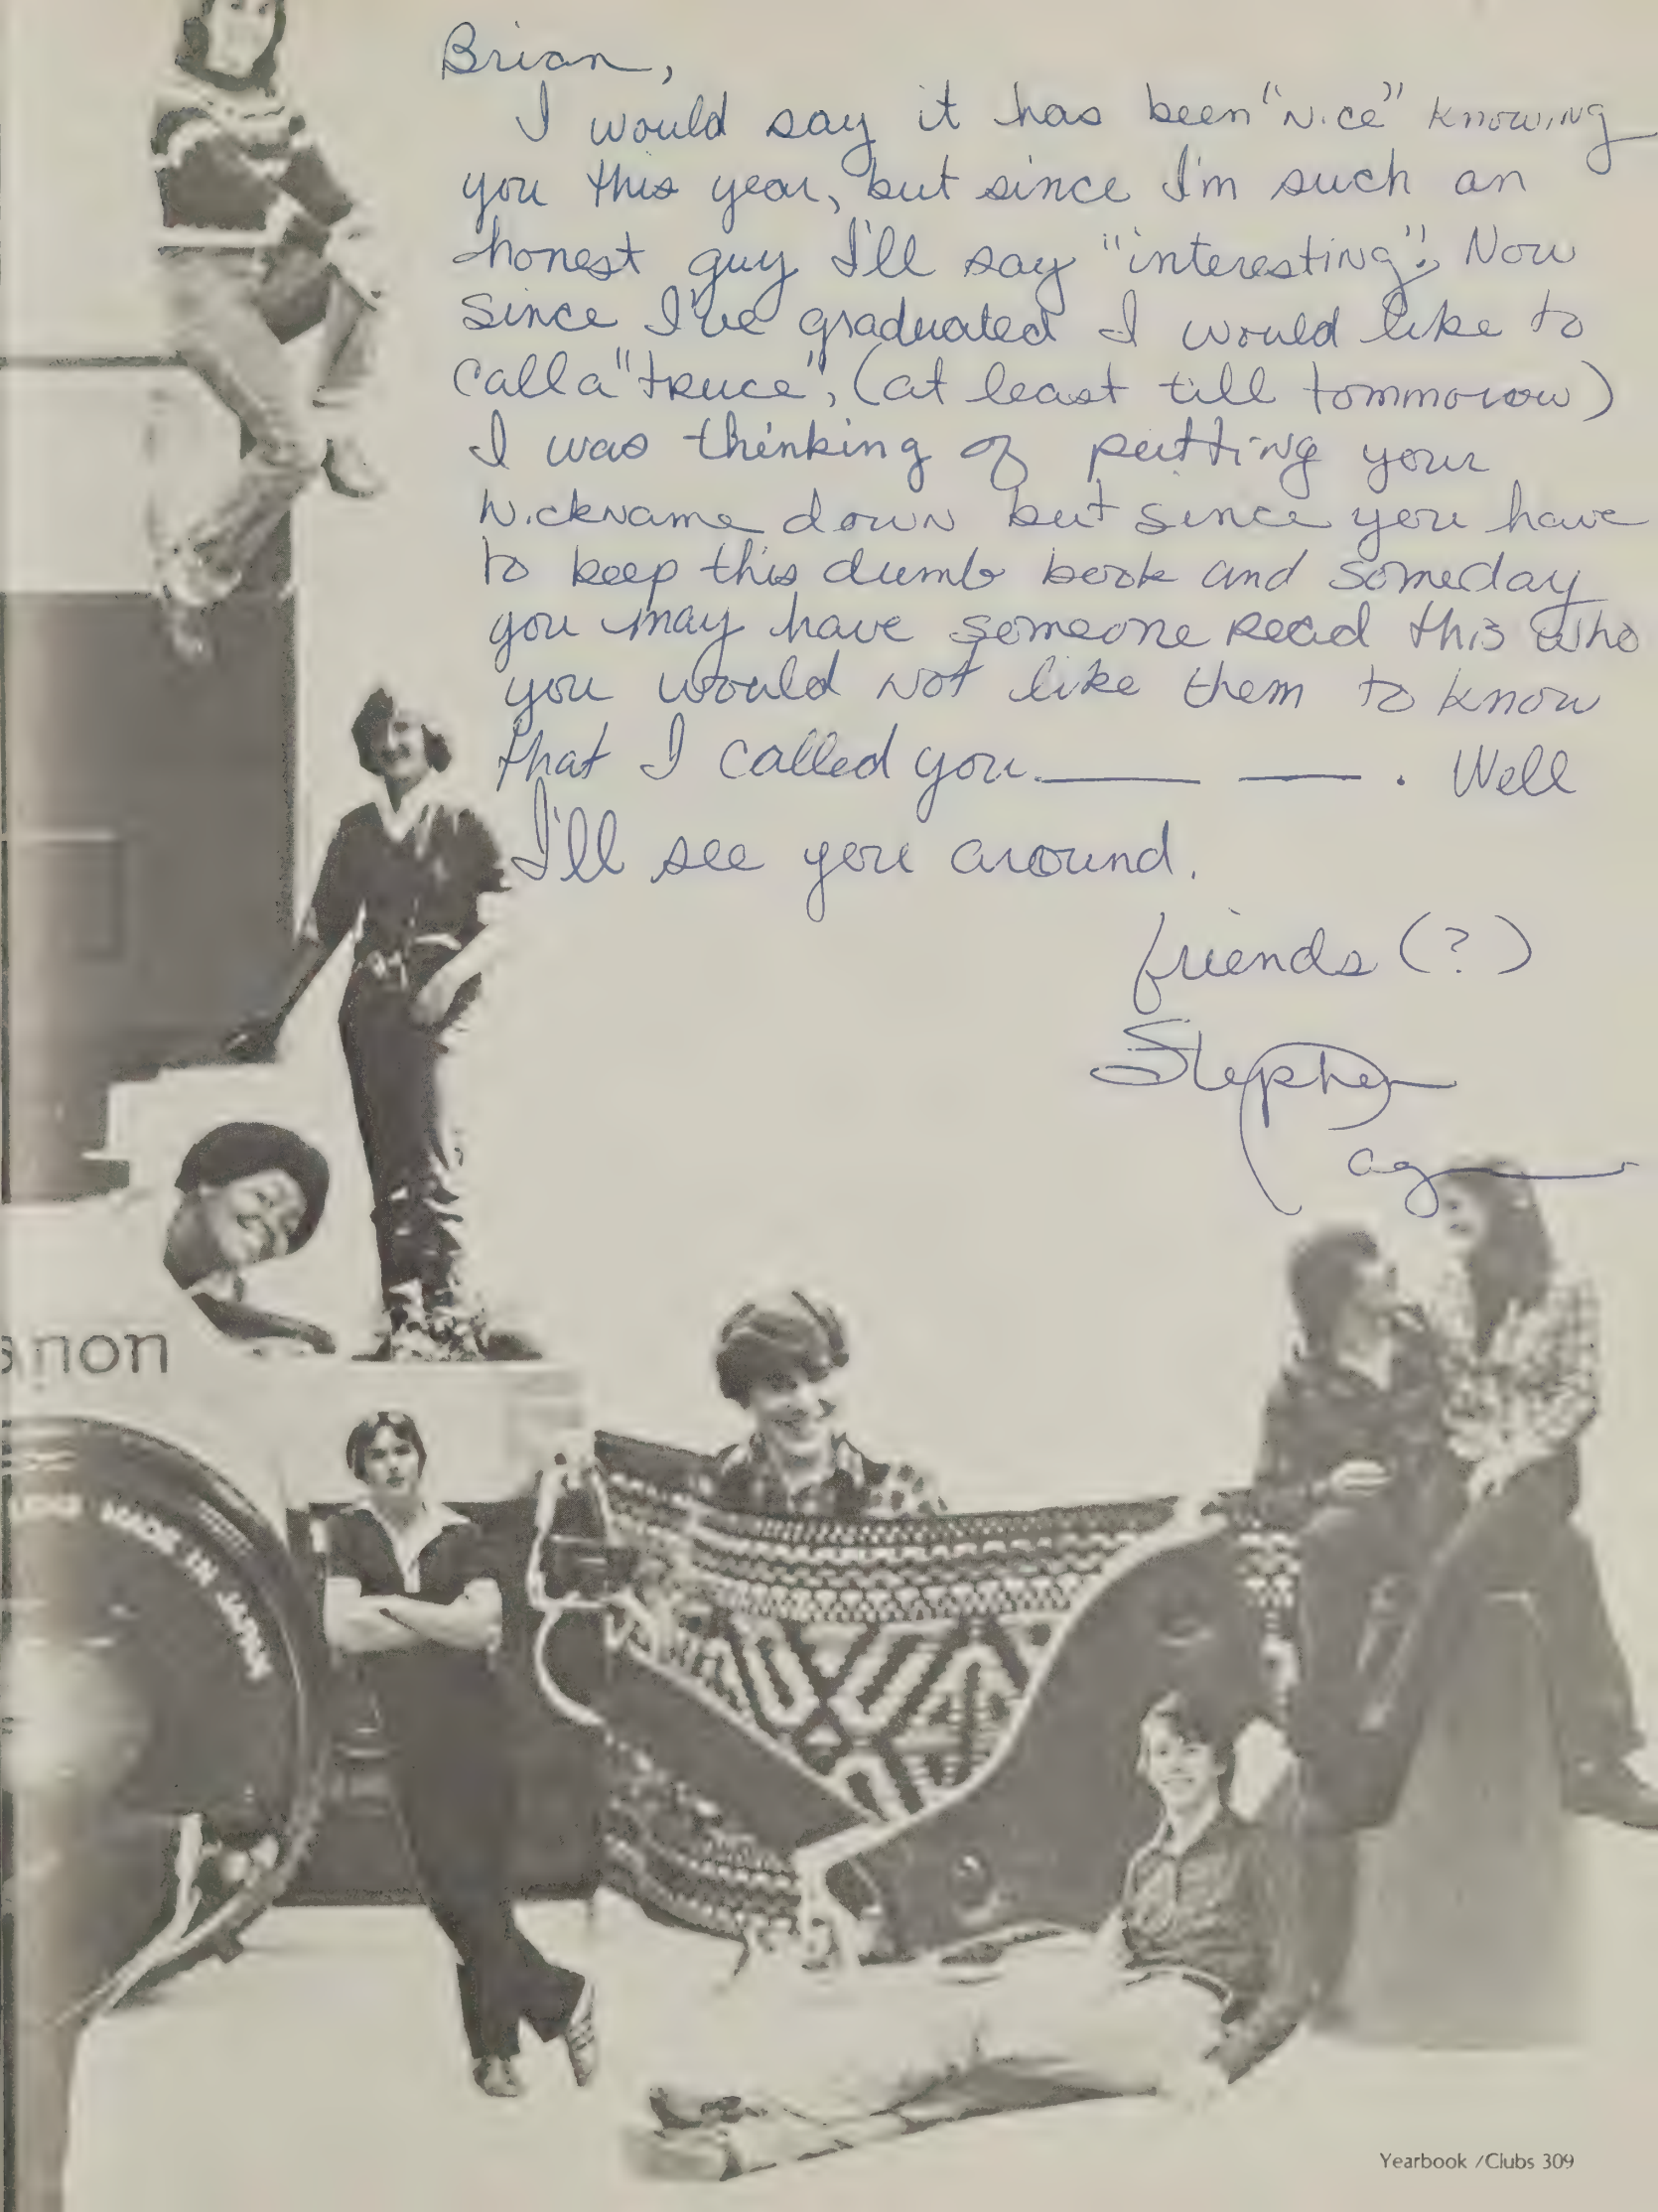 Brian,
I would say it has been "Nice" knowing
you this year, but since I'm such an
honest guy I'll say "interesting". Now
since I've graduated I would like to
call a "truce", (at least till tommorow)
I was thinking of putting your
Nickname down but since you have
to keep this dumb book and someday
you may have someone Read this who
you would not like them to know
that I called you ____ ____. Well
I'll see you around.
friends (?)
Stephen
anon
MADE IN JAPAN
Yearbook /Clubs 309